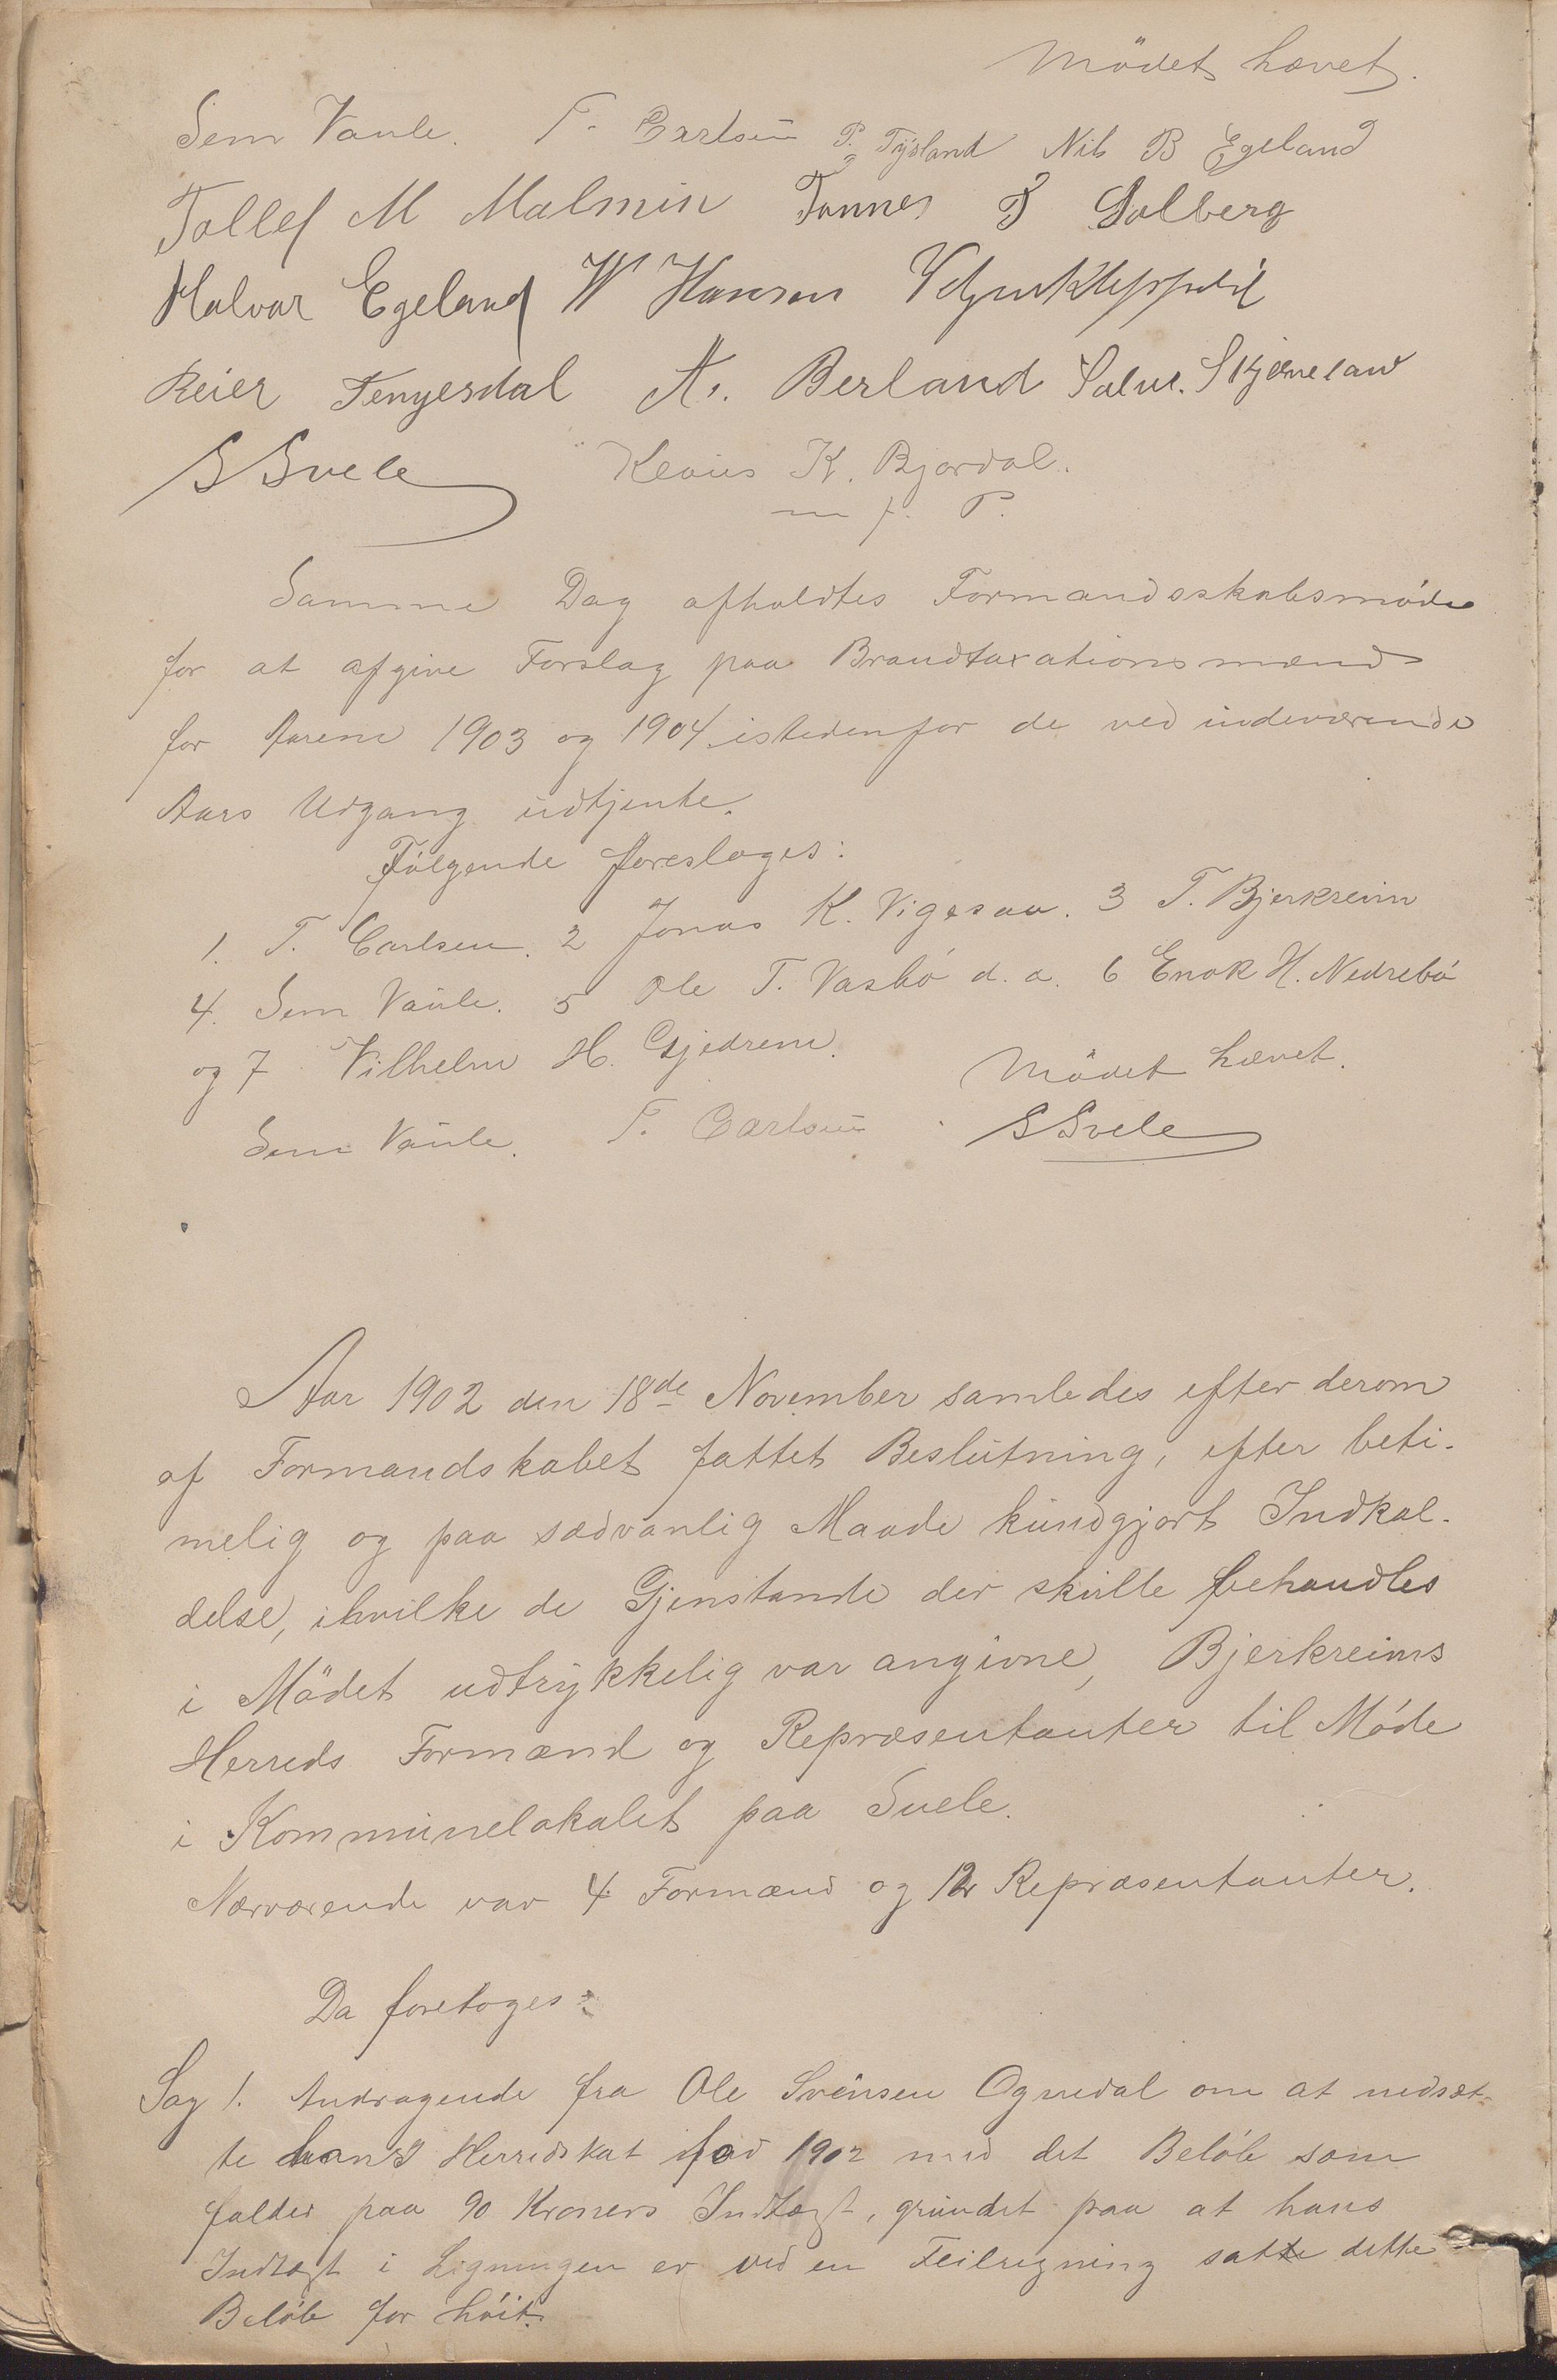 Mödet hævet.
Sem Vaule. T. Carlsen P. Tysland Nils B Egeland
Tollef M Malmin Tønnes T Solberg
Halvar Egeland W Hansen
Reier Tengesdal A. Berland Salve. Skjæveland
S Svele Klaus K. Bjordal.
m f. P.
Samme Dag afholdtes Formandsskabsmøde
for at afgive Forslag paa Brandtaxationsmænd
for Aarene 1903 og 1904 istedenfor de ved indeværende
Aars Udgang udtjente.
Følgende foresloges:
1. T. Carlsen. 2 Jonas K. Vigesaa. 3 T. Bjerkreim
4. Sem Vaule. 5 Ole T. Vasbø d. a. 6 Enok H. Nedrebø
og 7 Vilhelm H. Gjedrem.
Mödet hævet.
Sem Vaule. T. Carlsen S Svele
Aar 1902 den 18de November samledes efter derom
af Formandskabet fattet Beslutning, efter beti-
melig og paa sædvanlig Maade kundgjort Indkal-
delse, ihvilke de Gjenstande der skulle behandles
i Mødet udtrykkelig var angivne, Bjerkreims
Herreds Formænd og Repræsentanter til Møde
i Kommunelokalet paa Svele.
Nærværende var 4 Formænd og 12 Repræsentanter.
Da foretoges:
Sag 1. Andragende fra Ole Svensen Ognedal om at nedsæt-
te hans Herredskat for 1902 med det Beløb som
falder paa 90 Kroners Indtægt, grundet paa at hans
Indtægt i Ligningen er ved en Feilregning satte dette
Beløb for høit.